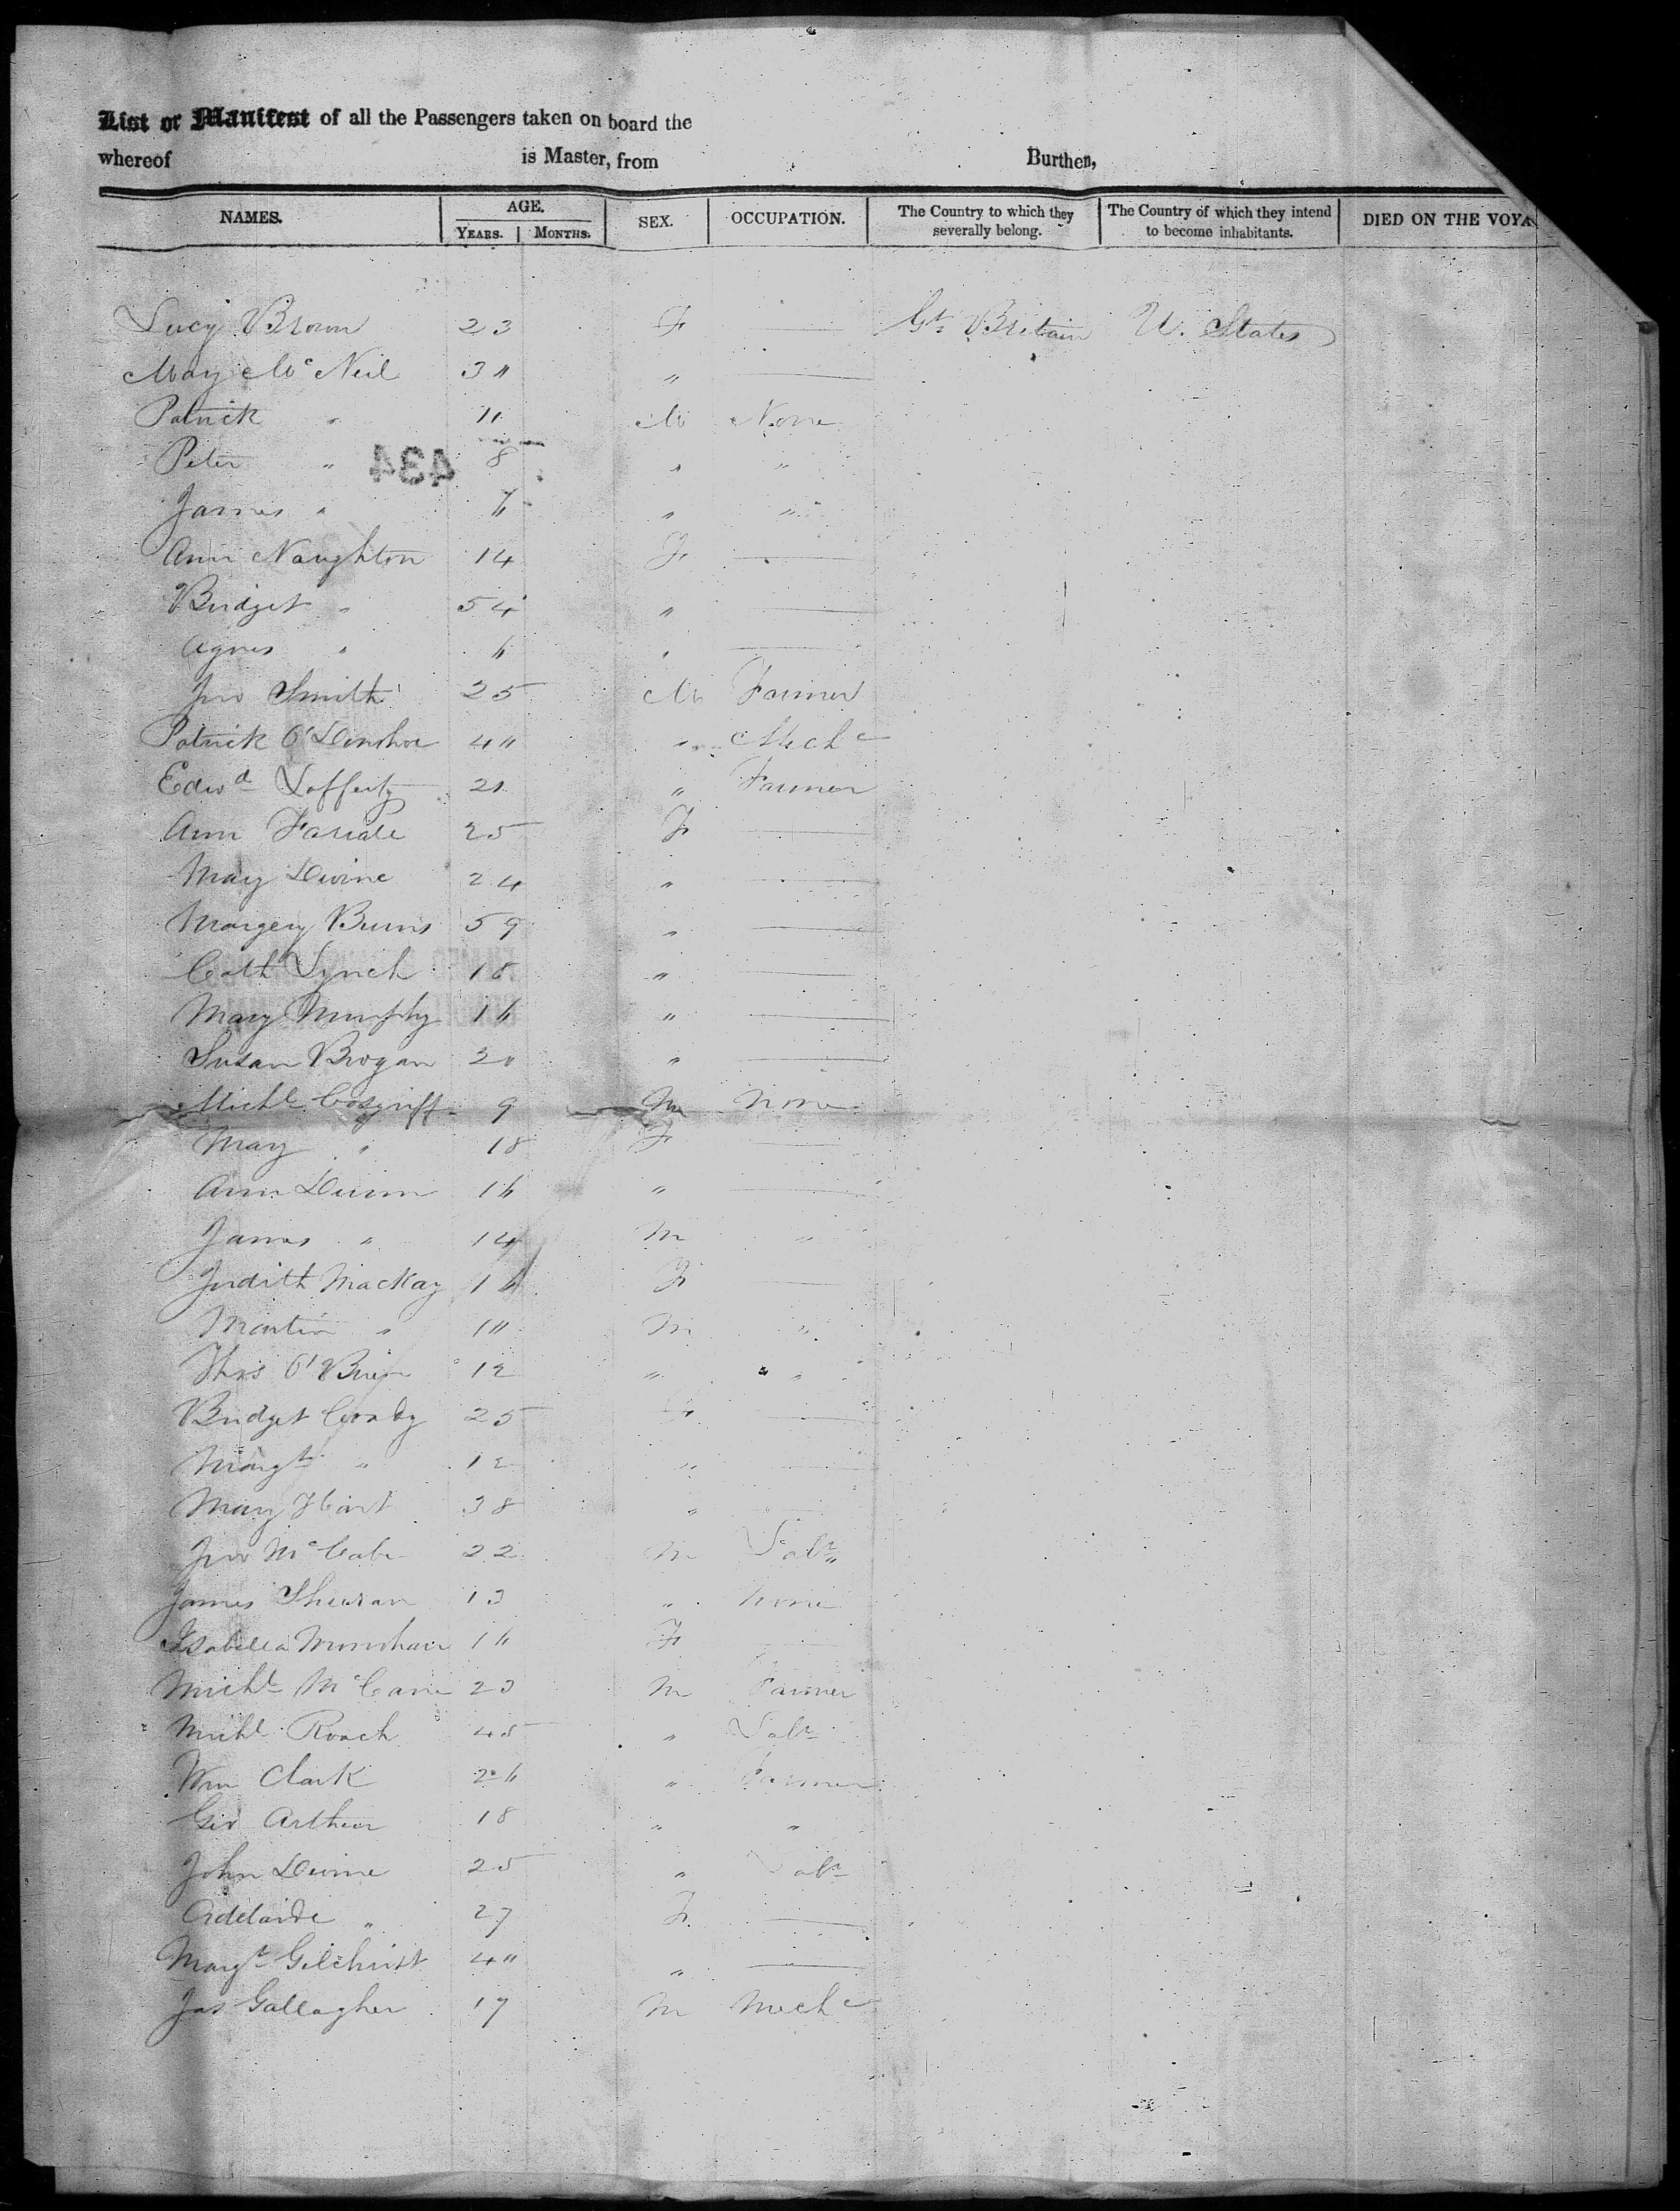 List or Manifest of all the Passengers taken on board the
whereof is Master, from Burthen,
NAMES. AGE. YEARS. MONTHS. SEX. OCCUPATION. The Country to which they severally belong. The Country of which they intend to become inhabitants. DIED ON THE VOYA
Lucy Brown 23 F — Gt Britain U. States
Mary McNeil 3" " —
Patrick " 11 M None
434
Peter " 8 " "
James " " "
Ann Naughton 14 F —
Bridget " 54 " —
Agnes " 6 " —
Jno Smith 25 M Farmer
Patrick O'Donohoe 4" " Mechc
Edwd Lafferty 21 " Farmer
Ann 25 F —
Mary Divine 24 " —
Margery Burns 59 " —
Cath Lynch 18 " —
Mary Murphy 16 " —
Susan Brogan 20 " —
Michl Cosgriff 9 M None
Mary " 18 F —
Ann Dunn 16 " —
James " 14 M "
Judith MacKay 16 F —
Martin " 1" M "
Thos O'Brien 12 " "
Bridget 25 F —
Margt " 12 " —
Mary Hart 38 " —
Jno McCabe 22 M Labr
James 13 " None
Isabella 16 F —
Michl McCane 23 M Farmer
Michl Roach 45 " Labr
Wm Clark 26 " Farmer
Geo Arthur 18 " "
John Divine 25 " Labr
Adelaide " 27 F —
Margt Gilchrist 4" " —
Jas Gallagher 17 M Mechc